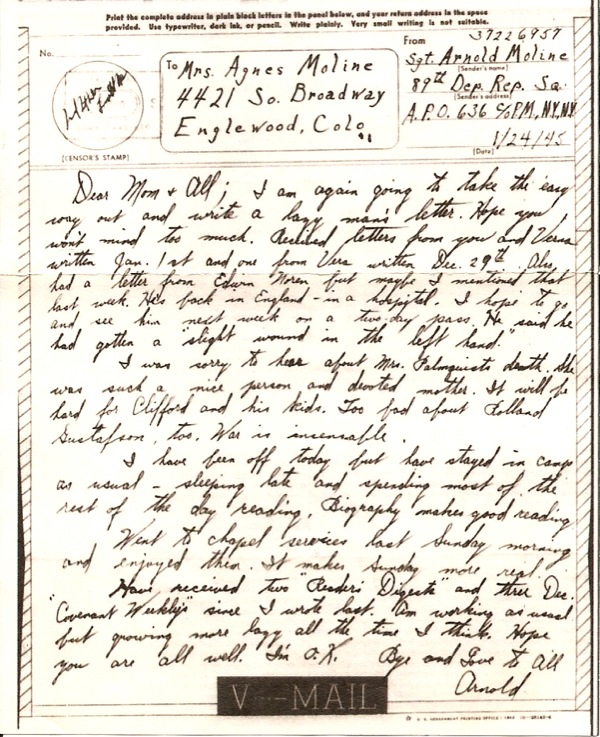 Print the complete address in plain block letters in the panel below, and your return address in the space
provided. Use typewriter, dark ink, or pencil. Write plainly. Very small writing is not suitable.
No.
To Mrs. Agnes Moline
4421 So. Broadway
Englewood, Colo.
From 37226957
Sgt. Arnold Moline
(Sender's name)
89th Dep. Rep. Sq.
(Sender's address)
A.P.O. 636 c/o P.M., N.Y., N.Y.
1/24/45
(Date)
(CENSOR'S STAMP)
Dear Mom & All; I am again going to take the easy
way out and write a lazy mans letter. Hope you
won't mind too much. Received letters from you and Verna
written Jan. 1st and one from Vera written Dec. 29th. Also,
had a letter from Edwin Noren, but maybe I mentioned that
last week. He's back in England - in a hospital. I hope to go
and see him next week on a two-day pass. He said he
had gotten a "slight wound in the left hand."
I was sorry to hear about Mrs. Palmquists death. She
was such a nice person and devoted mother. It will be
hard for Clifford and his kids. Too bad about Rolland
Gustafson, too. War is
I have been off today but have stayed in camp
as usual - sleeping late and spending most of the
rest of the day reading. Biography makes good reading
Went to chapel services last Sunday morning
and enjoyed them. It makes Sunday more real.
Have received two "Reader's Digests" and three Dec.
"Covenant Weekly's" since I wrote last. Am working as usual
but growing more lazy all the time I think. Hope
you are all well. I'm O.K. Bye and Love to All
Arnold
V - MAIL
U. S. GOVERNMENT PRINTING OFFICE